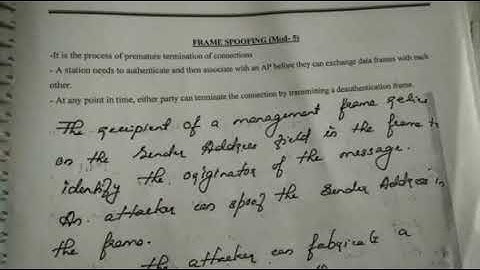 FRAME SPOOFING (Mod- 5)
-It is the process of premature termination of connections
- A station needs to authenticate and then associate with an AP before they can exchange data frames with each
other.
- At any point in time, either party can terminate the connection by transmitting a deauthentication frame.
The recipient of a management frame relies
on the Sender Address field in the frame to
identify the originator of the message.
An attacker can spoof the Sender Address in
the frame.
the attacker can fabricate a